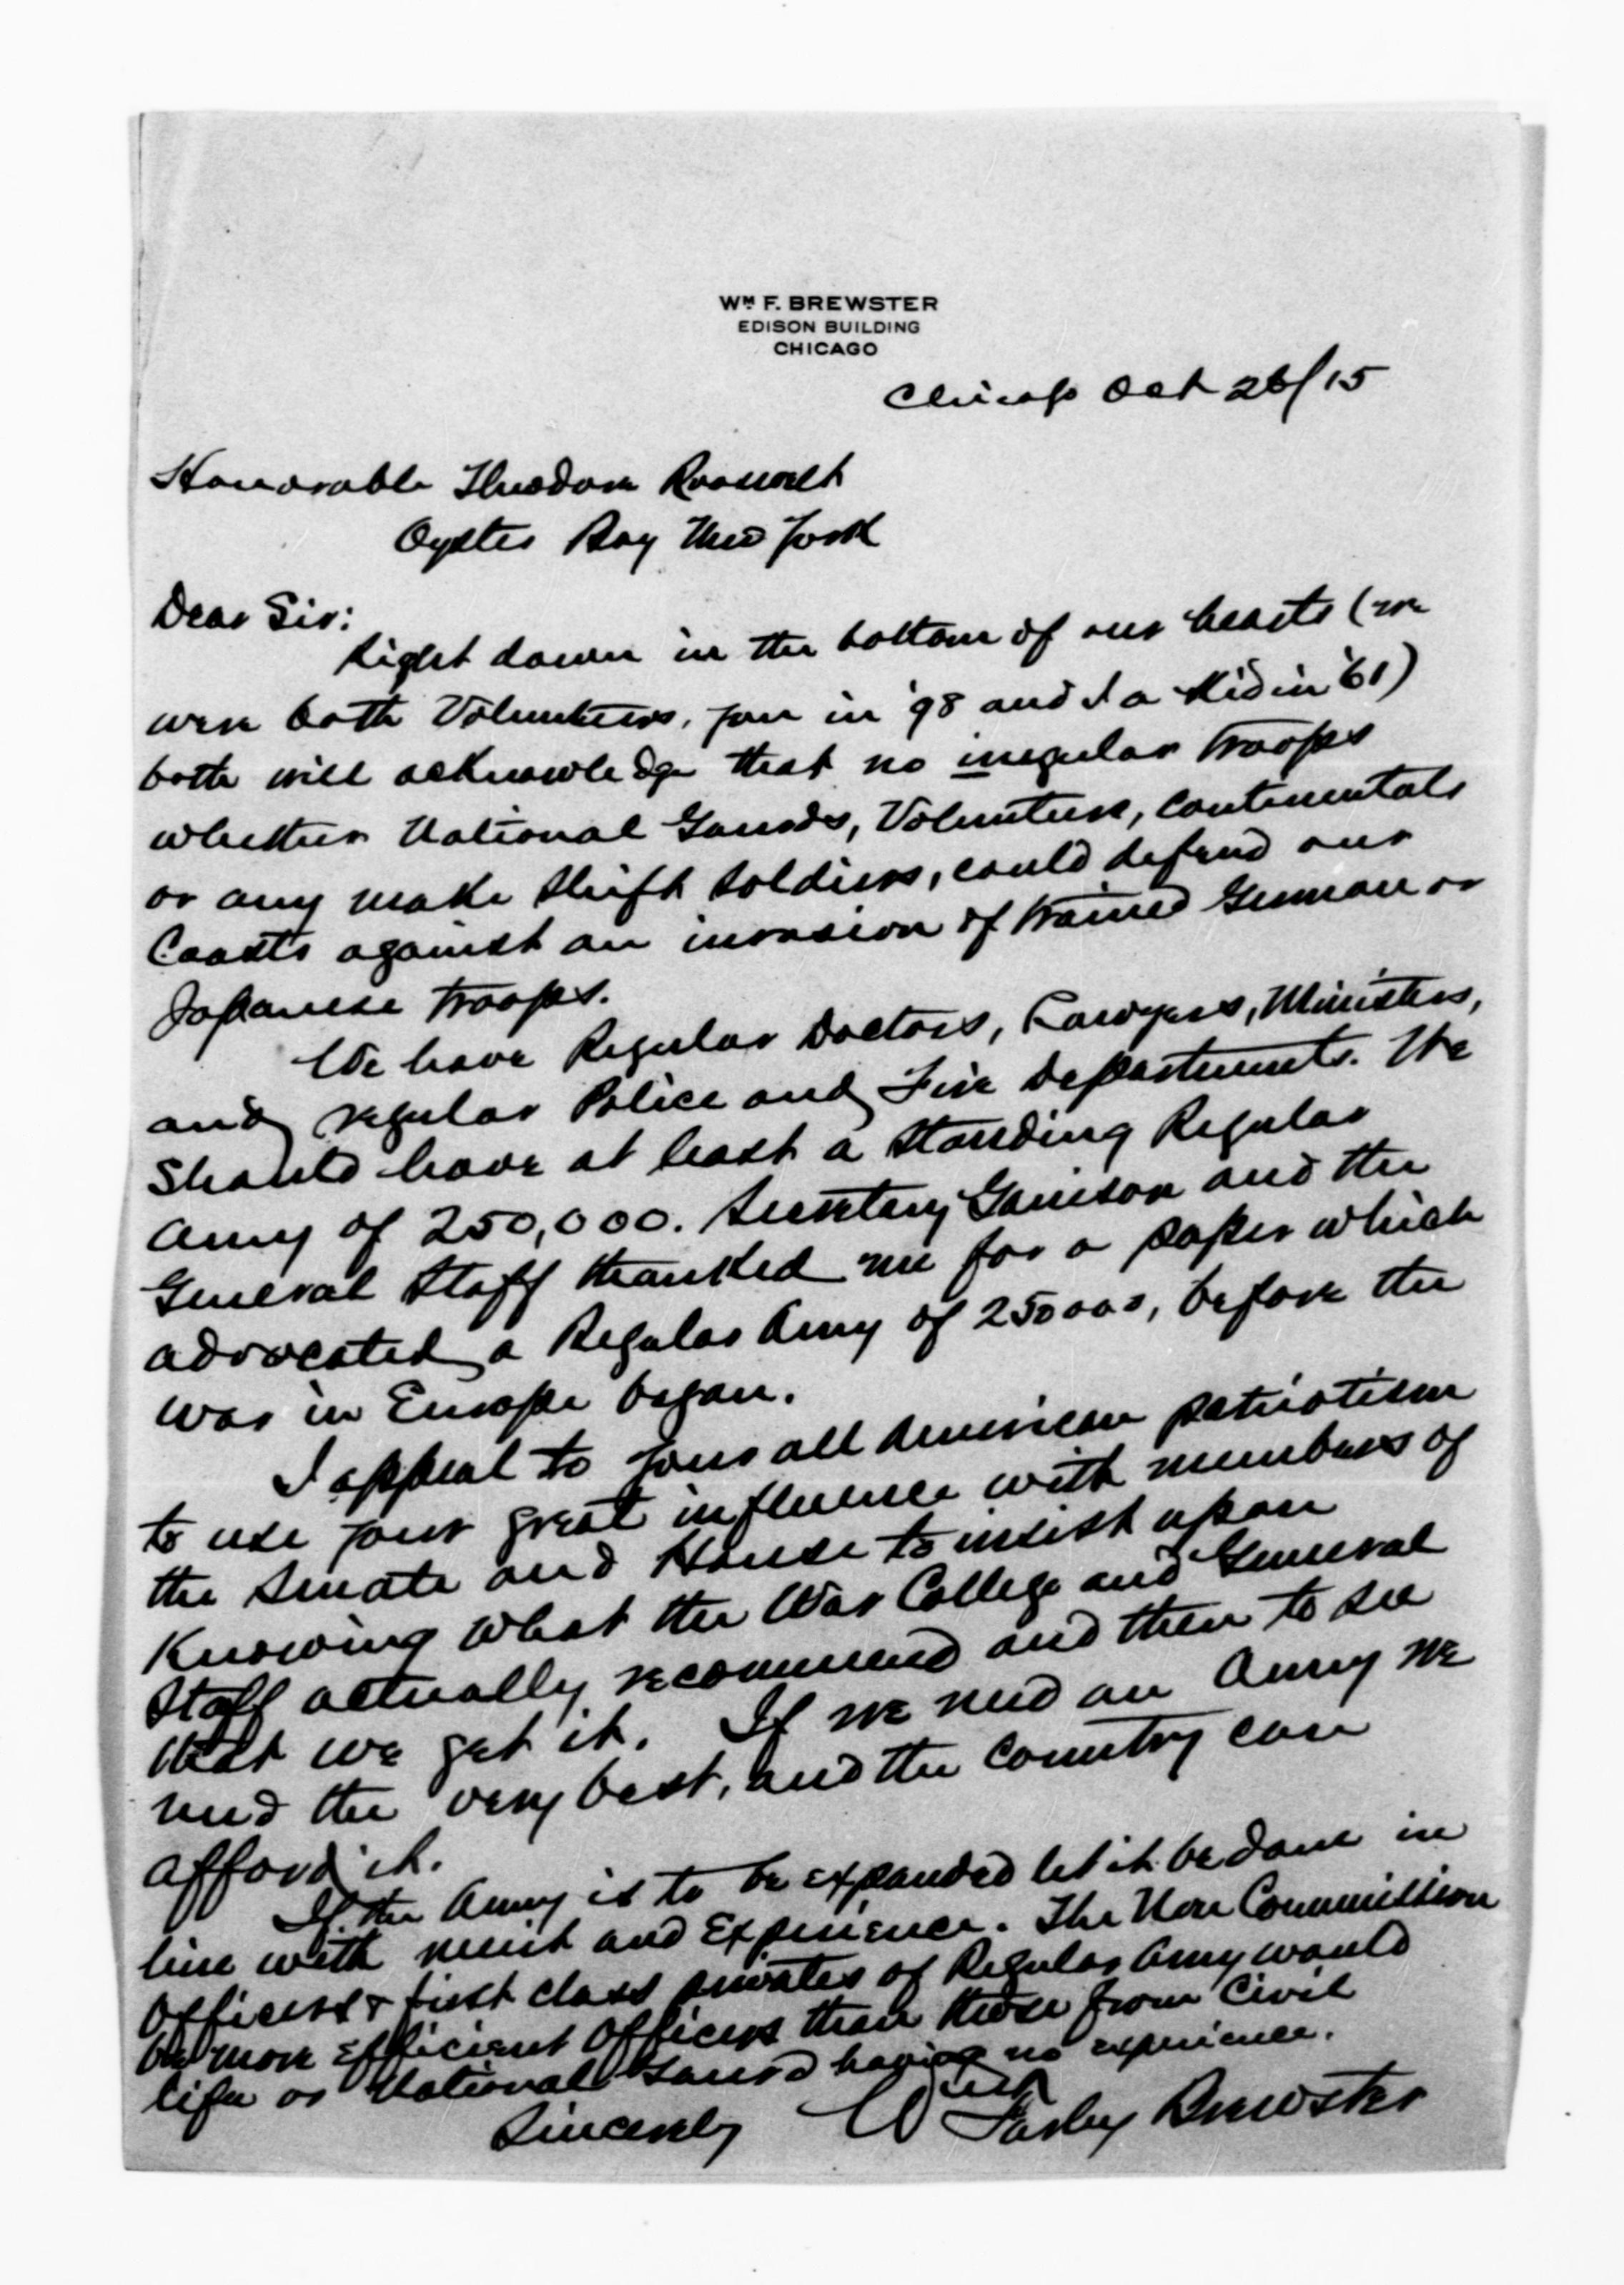 WM F. BREWSTER
EDISON BUILDING
CHICAGO
Chicago Oct 26/15
Honorable Theodore Roosevelt
Oyster Bay New York
Dear Sir:
Right down in the bottom of our hearts (we
were both Volunteers, you in '98 and I a Kid in '61)
both will acknowledge that no irregular troops
whether National Guards, Volunteers, Continentals
or any make shift soldiers, could defend our
Coasts against an invasion of trained German or
Japanese troops.
We have Regular Doctors, Lawyers, Ministers,
and regular Police and Fire Departments. We
Should have at least a Standing Regular
Army of 250,000. Secretary Garrison and the
General Staff thanked me for a paper which
advocated a Regular Army of 250000, before the
war in Europe began.
I appeal to your all American patriotism
to use your great influence with members of
the Senate and House to insist upon
Knowing what the War College and General
Staff actually recommend and then to see
that we get it. If we need an Army we
need the very best, and the Country can
afford it.
If the Army is to be expanded let it be done in
line with merit and Experience. The Non Commission
Officers & first class privates of Regular Army would
be more efficient Officers than those from Civil
life or National Guard having no experience.
Sincerely Wm Farley Brewster